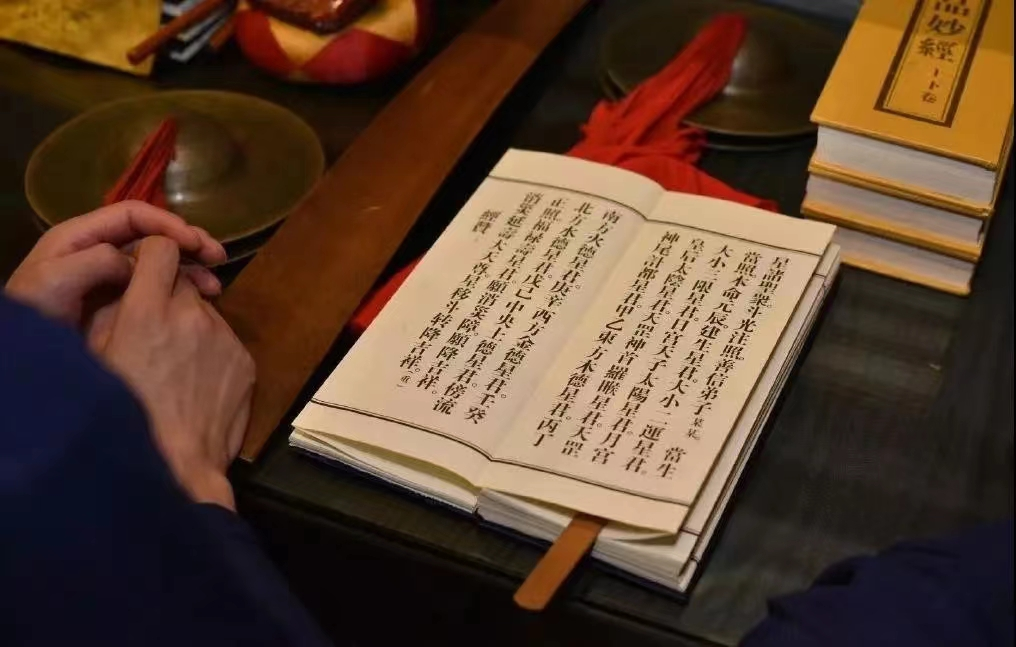 星諸聖衆。斗光注照。善信弟子某某。當生
當照。本命元辰。建生星君。大小二運星君。
大小三限星君。日宮天子太陽星君。月宮
皇后太陰星君。天罡神首羅睺星君。天罡
神尾計都星君。甲乙東方木德星君。丙丁
南方火德星君。庚辛西方金德星君。壬癸
北方水德星君。戊己中央土德星君。傍流
正照。福祿壽星君。願消災障。願降吉祥。
消災延壽大天尊。星移斗转降吉祥。(重)
經贊
妙經
上下卷